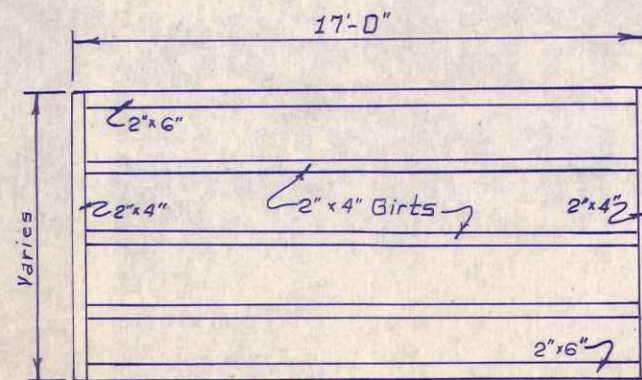 17'-0"
2"x6"
2"x4"
2"x4" Girts
2"x4"
Varies
2"x6"